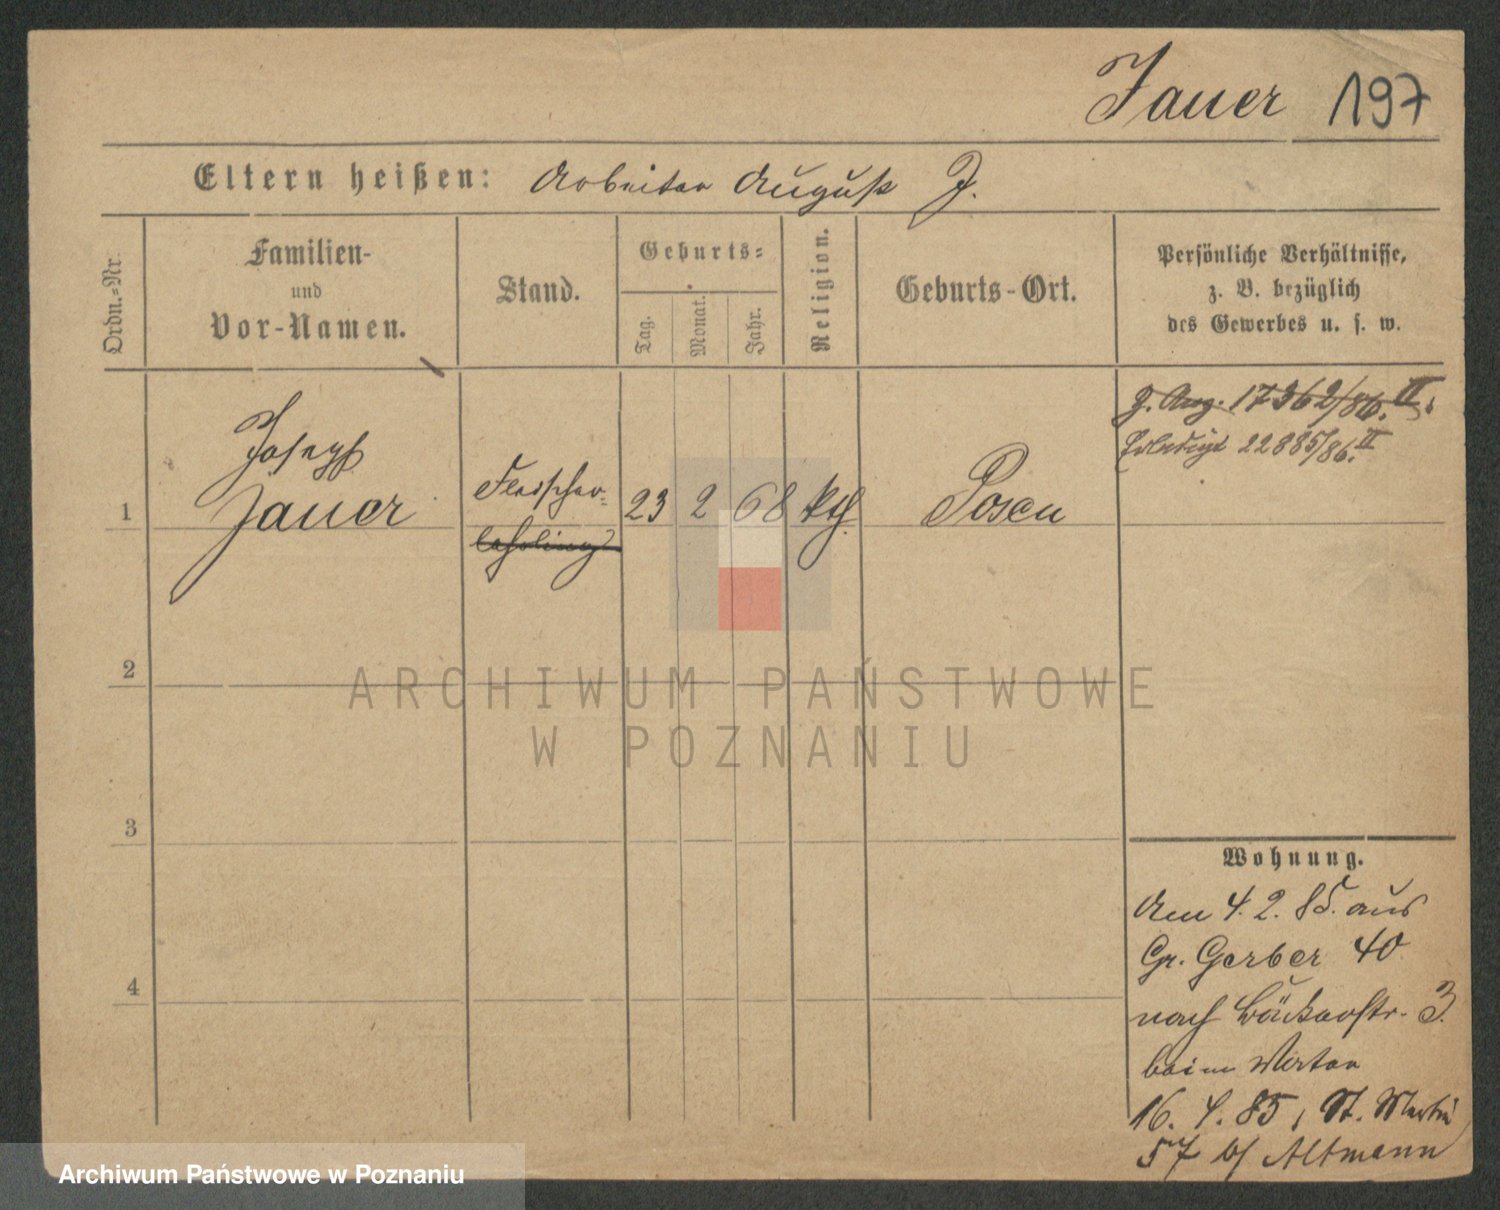 Jauer 197
Eltern heißen: Arbeiter August J.
Ordn.=Nr.
Familien-
und
Vor-Namen.
Stand.
Geburts=
Tag.
Monat.
Jahr.
Religion.
Geburts-Ort.
Persönliche Verhältnisse,
z. B. bezüglich
des Gewerbes u. s. w.
J. Aug. 17362/86. II.
Erledigt 22885/86. II
1
Joseph
Jauer
Fleischer=
lehrling
23 2 68 kth
Posen
2
3
4
Wohnung.
Am 4. 2. 85. aus
Gr. Gerber 40
nach Bäckerstr. 3.
beim
16. 4. 85, St. Martin
57 b/ Altmann
ARCHIWUM PAŃSTWOWE
W POZNANIU
Archiwum Państwowe w Poznaniu